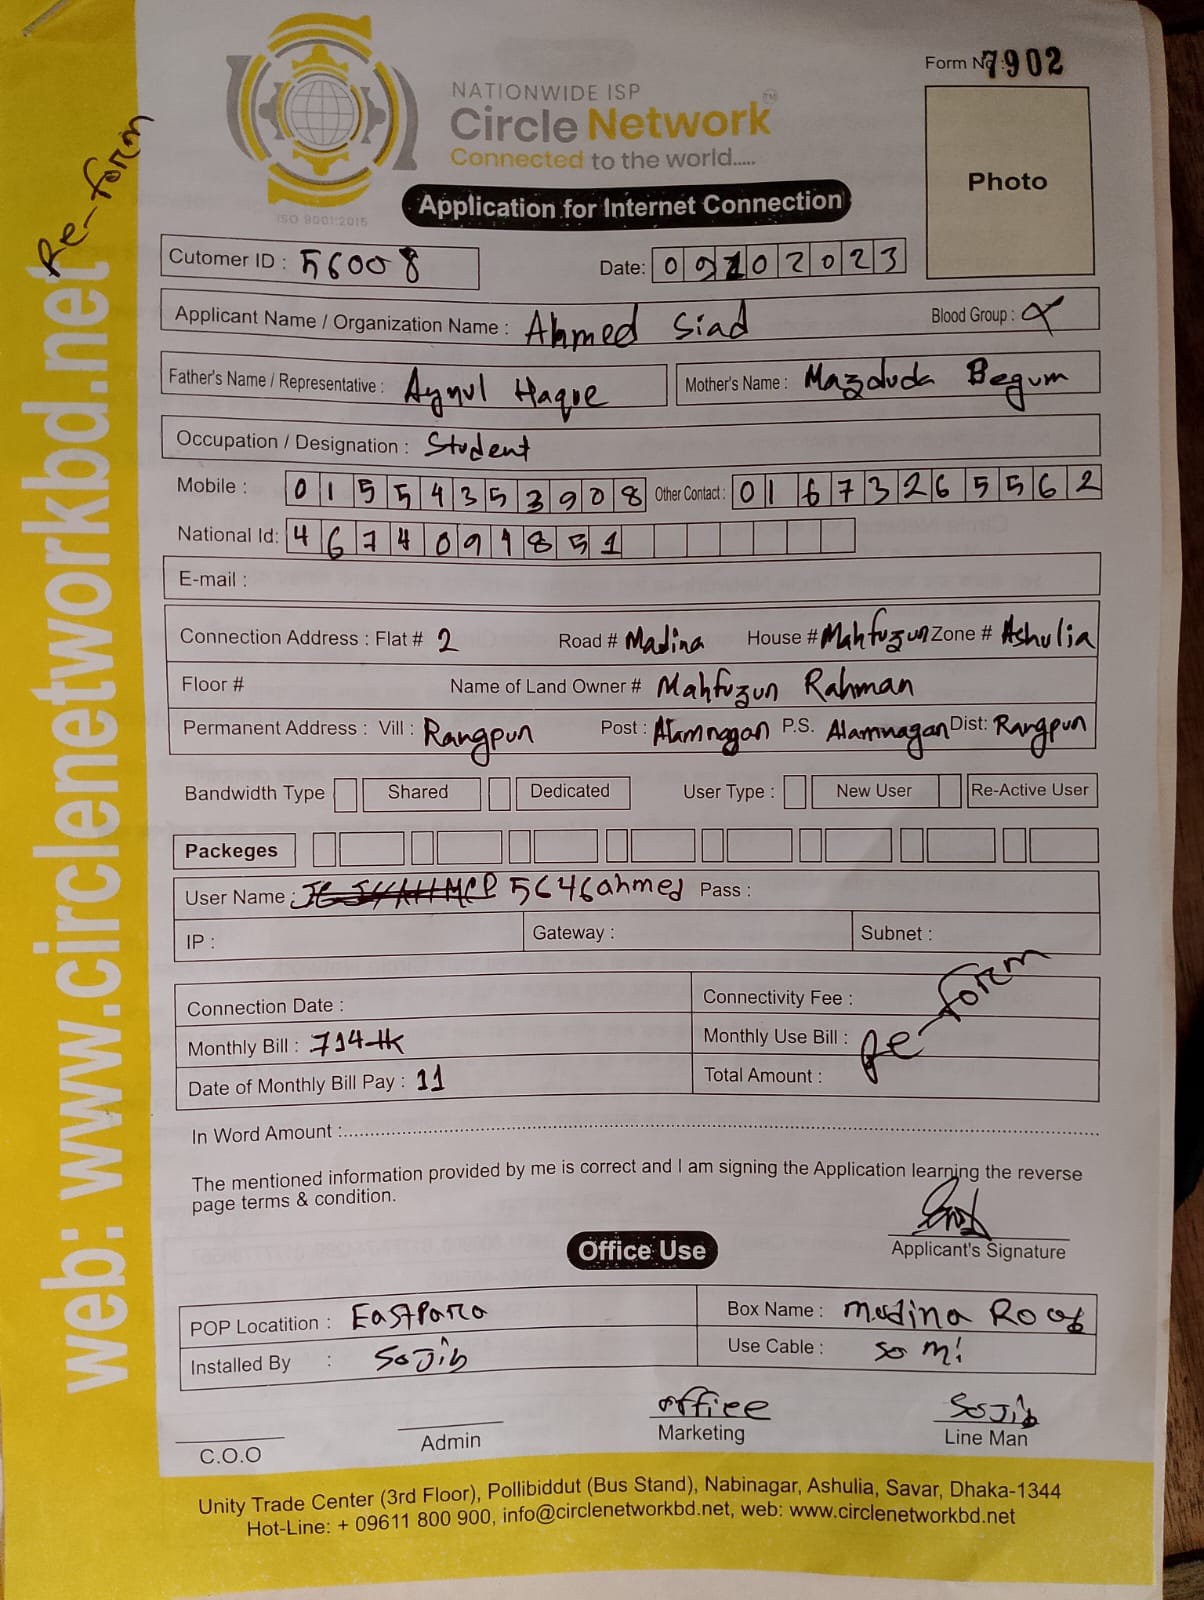 Re-form
web: www.circlenetworkbd.net
Form No 7902
NATIONWIDE ISP
Circle Network™
Connected to the world.....
ISO 9001:2015
Photo
Application for Internet Connection
Cutomer ID : 56008
Date: 09102023
Applicant Name / Organization Name : Ahmed Siad
Blood Group :
Father's Name / Representative : Aynul Haque
Mother's Name : Mazduda Begum
Occupation / Designation : Student
Mobile : 01554353908 Other Contact : 01673265562
National Id: 4674091851
E-mail :
Connection Address : Flat # 2 Road # Madina House # Mahfuzun Zone # Ashulia
Floor # Name of Land Owner # Mahfuzun Rahman
Permanent Address : Vill : Rangpun Post : Alamnagan P.S. Alamnagan Dist: Rangpun
Bandwidth Type Shared Dedicated User Type : New User Re-Active User
Packeges
User Name : 5646ahmed Pass :
IP : Gateway : Subnet :
Connection Date : Connectivity Fee :
Monthly Bill : 714 tk Monthly Use Bill : Re-form
Date of Monthly Bill Pay : 11 Total Amount :
In Word Amount :
The mentioned information provided by me is correct and I am signing the Application learning the reverse
page terms & condition.
Applicant's Signature
Office Use
POP Locatition : Eastpara Box Name : Madina Road
Installed By : Sojib Use Cable : 50 mi
office Sojib
C.O.O Admin Marketing Line Man
Unity Trade Center (3rd Floor), Pollibiddut (Bus Stand), Nabinagar, Ashulia, Savar, Dhaka-1344
Hot-Line: + 09611 800 900, info@circlenetworkbd.net, web: www.circlenetworkbd.net